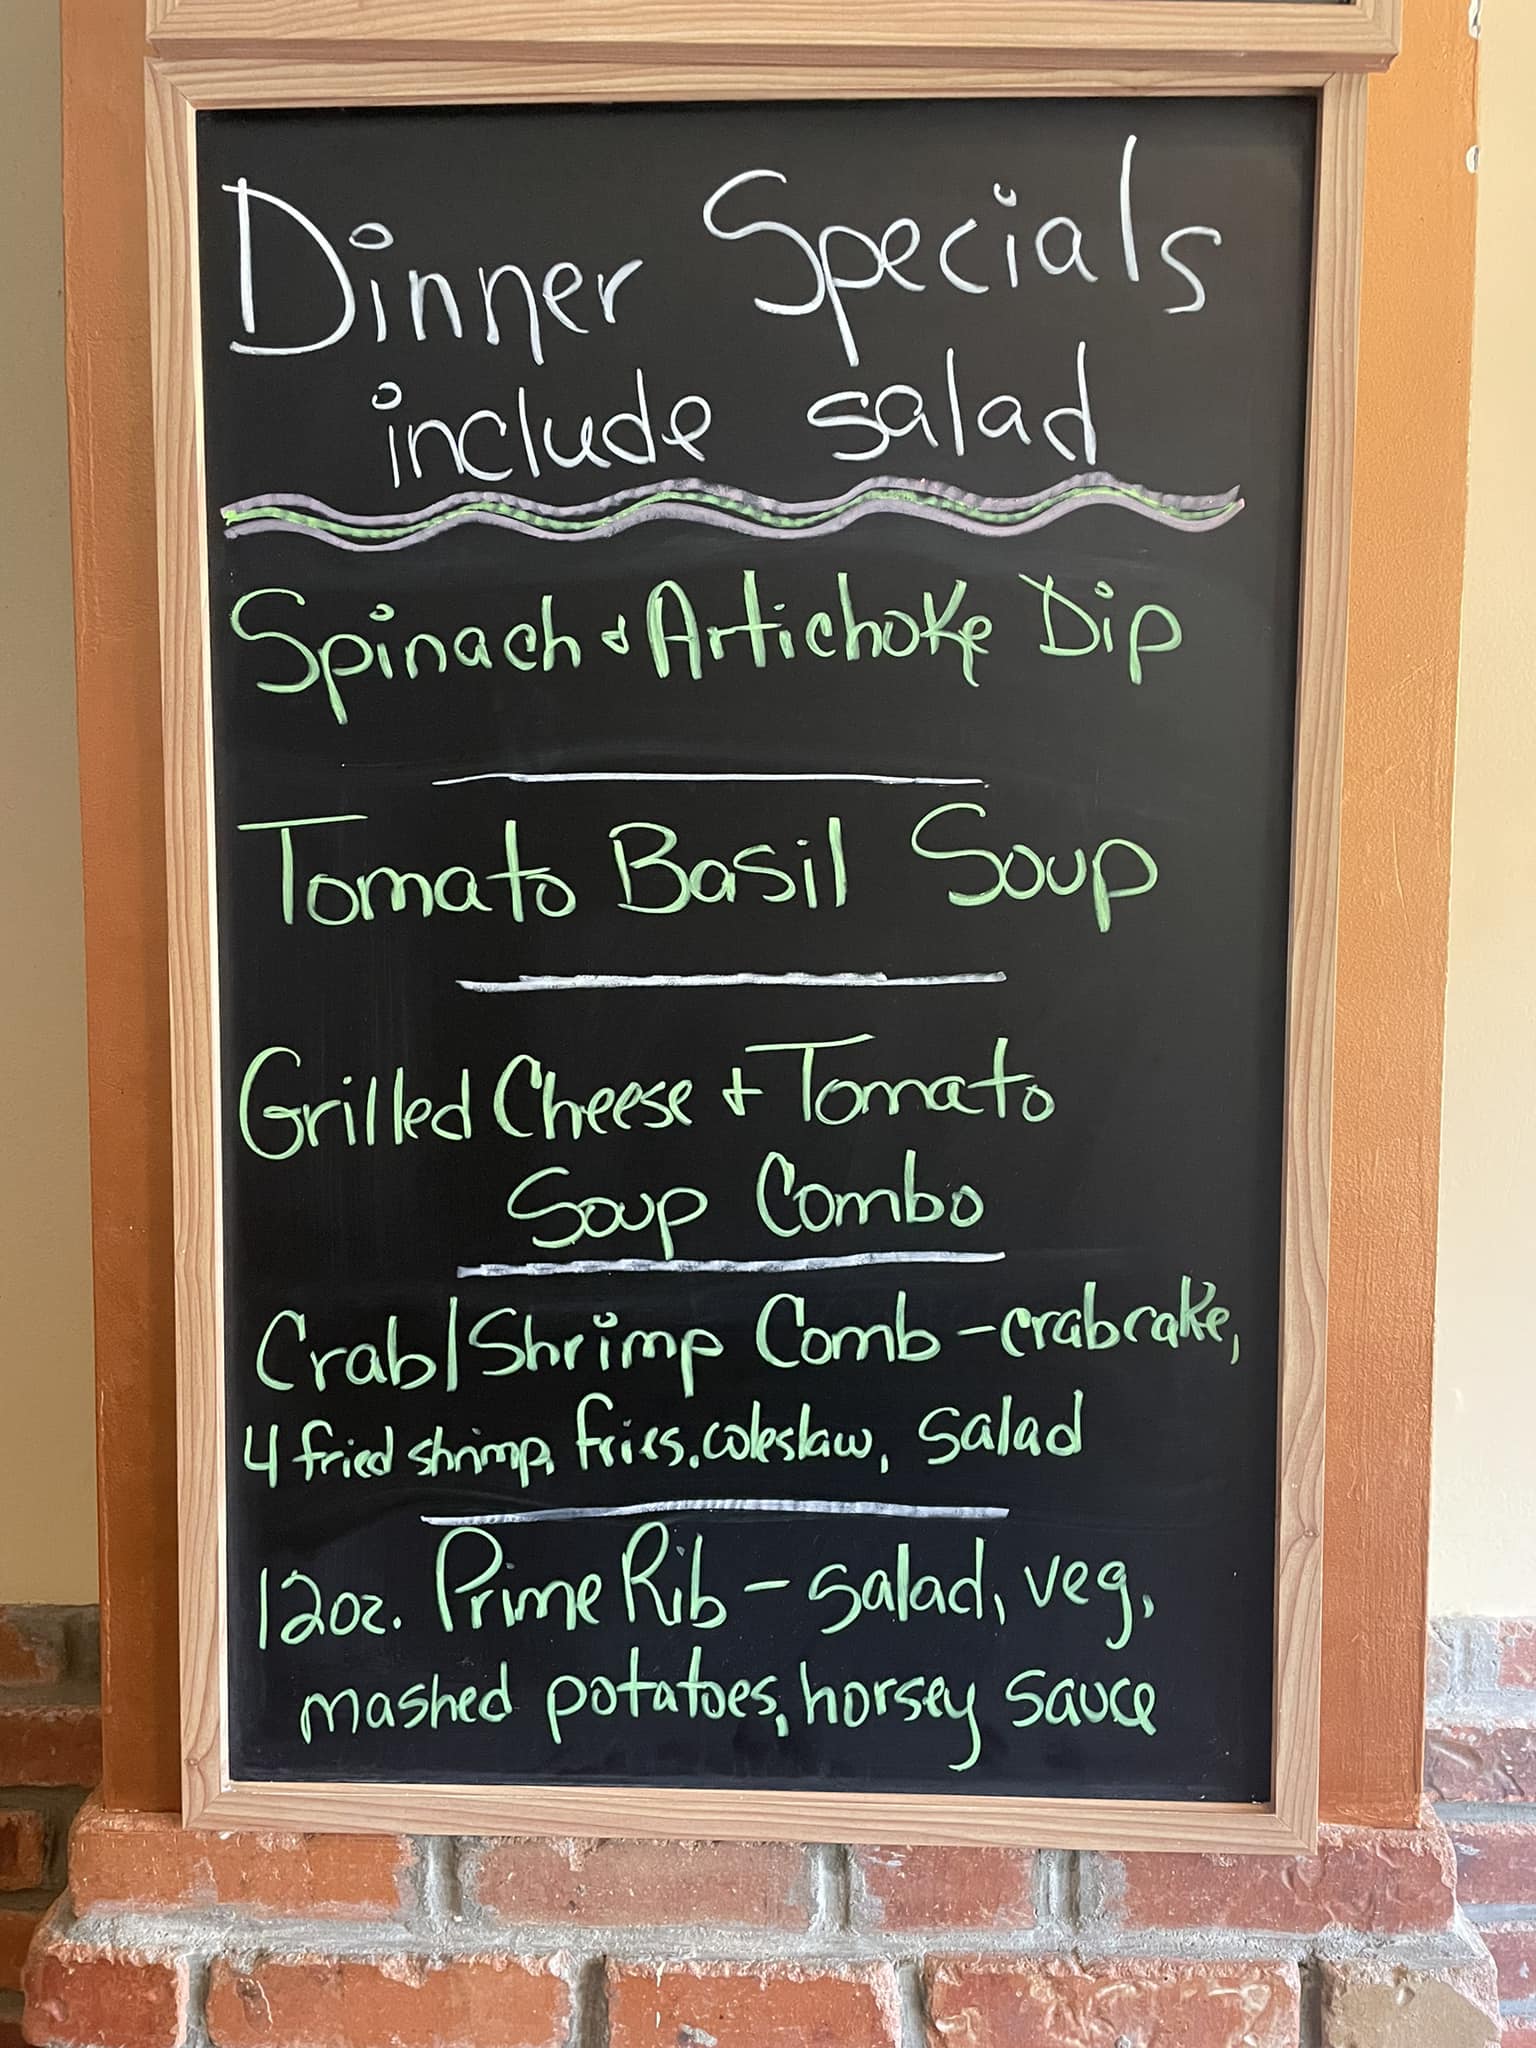 Dinner Specials
include salad
Spinach & Artichoke Dip
Tomato Basil Soup
Grilled Cheese & Tomato
Soup Combo
Crab/Shrimp Comb - crabcake,
4 fried shrimp, fries, coleslaw, salad
12oz. Prime Rib - salad, veg,
mashed potatoes, horsey sauce